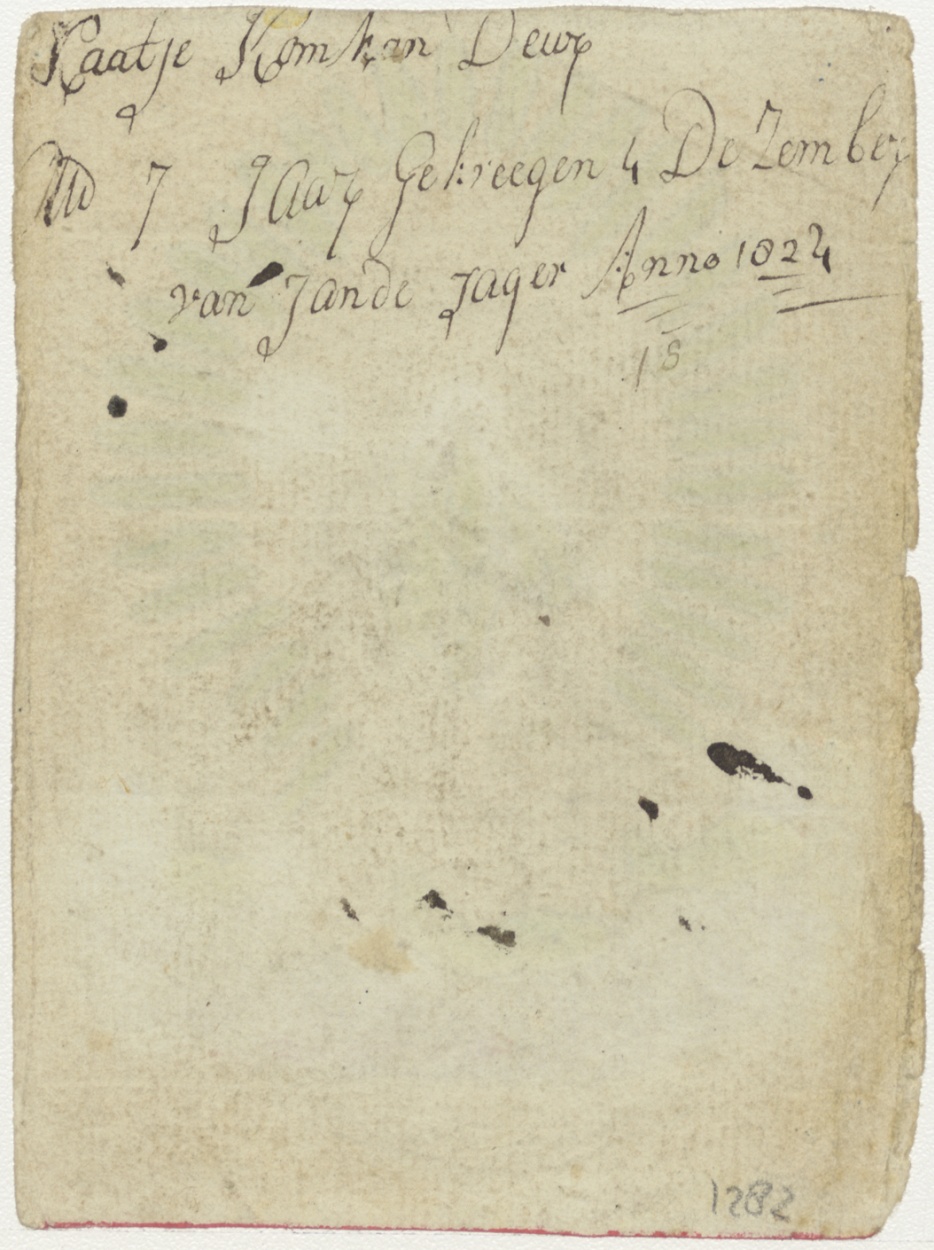 Kaatje Komkan Deur
Oud 7 Jaar Gekreegen 4 DeZember
van Jande Jager Anno 1824
18
1282